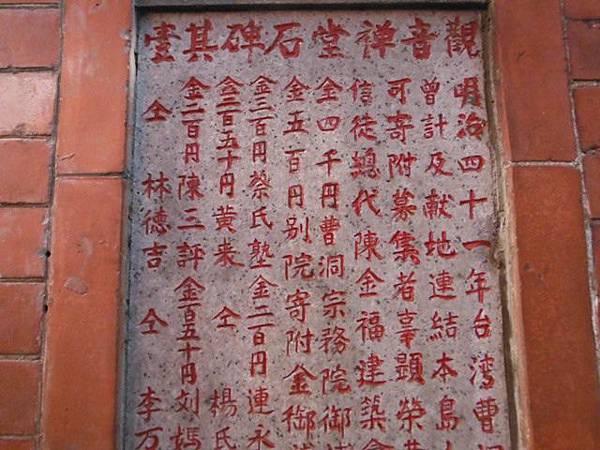 觀音禪堂石碑其壹
明治四十一年台湾曹
曾計及献地連結本島
可寄附募集者辜顕榮
信徒總代陳金福建築
金四千円曹洞宗務院御
金五百円别院寄附金御
金三百円蔡氏塾金二百円連永
金二百五十円黄来 仝 楊氏
金二百円陳三評金百五十円刘媽
仝 林德吉 仝 李万